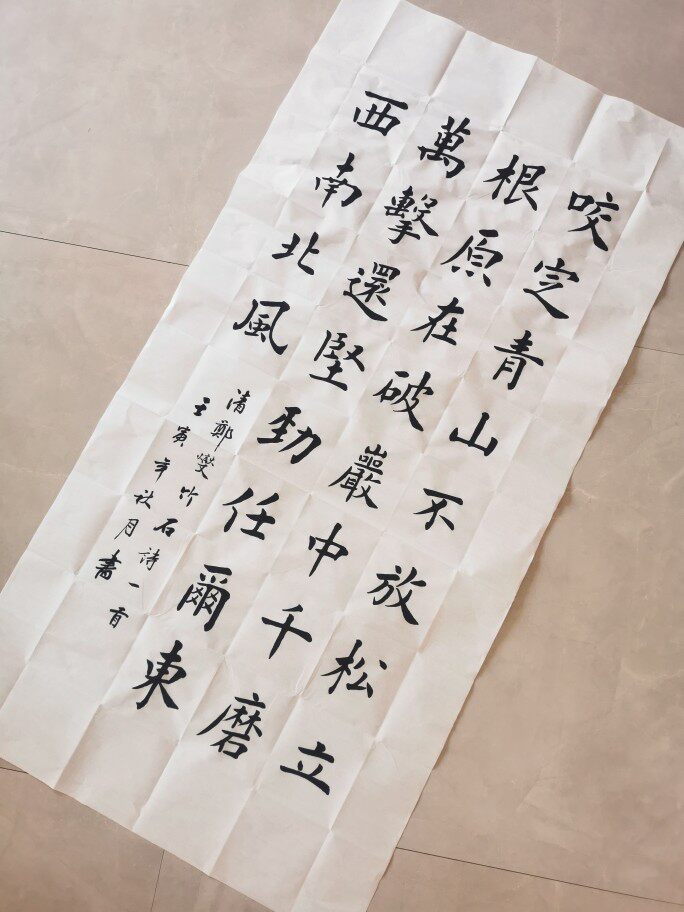 咬定青山不放松立
根原在破巖中千磨
萬擊還堅勁任爾東
西南北風
清鄭燮竹石詩一首
壬寅年秋月書